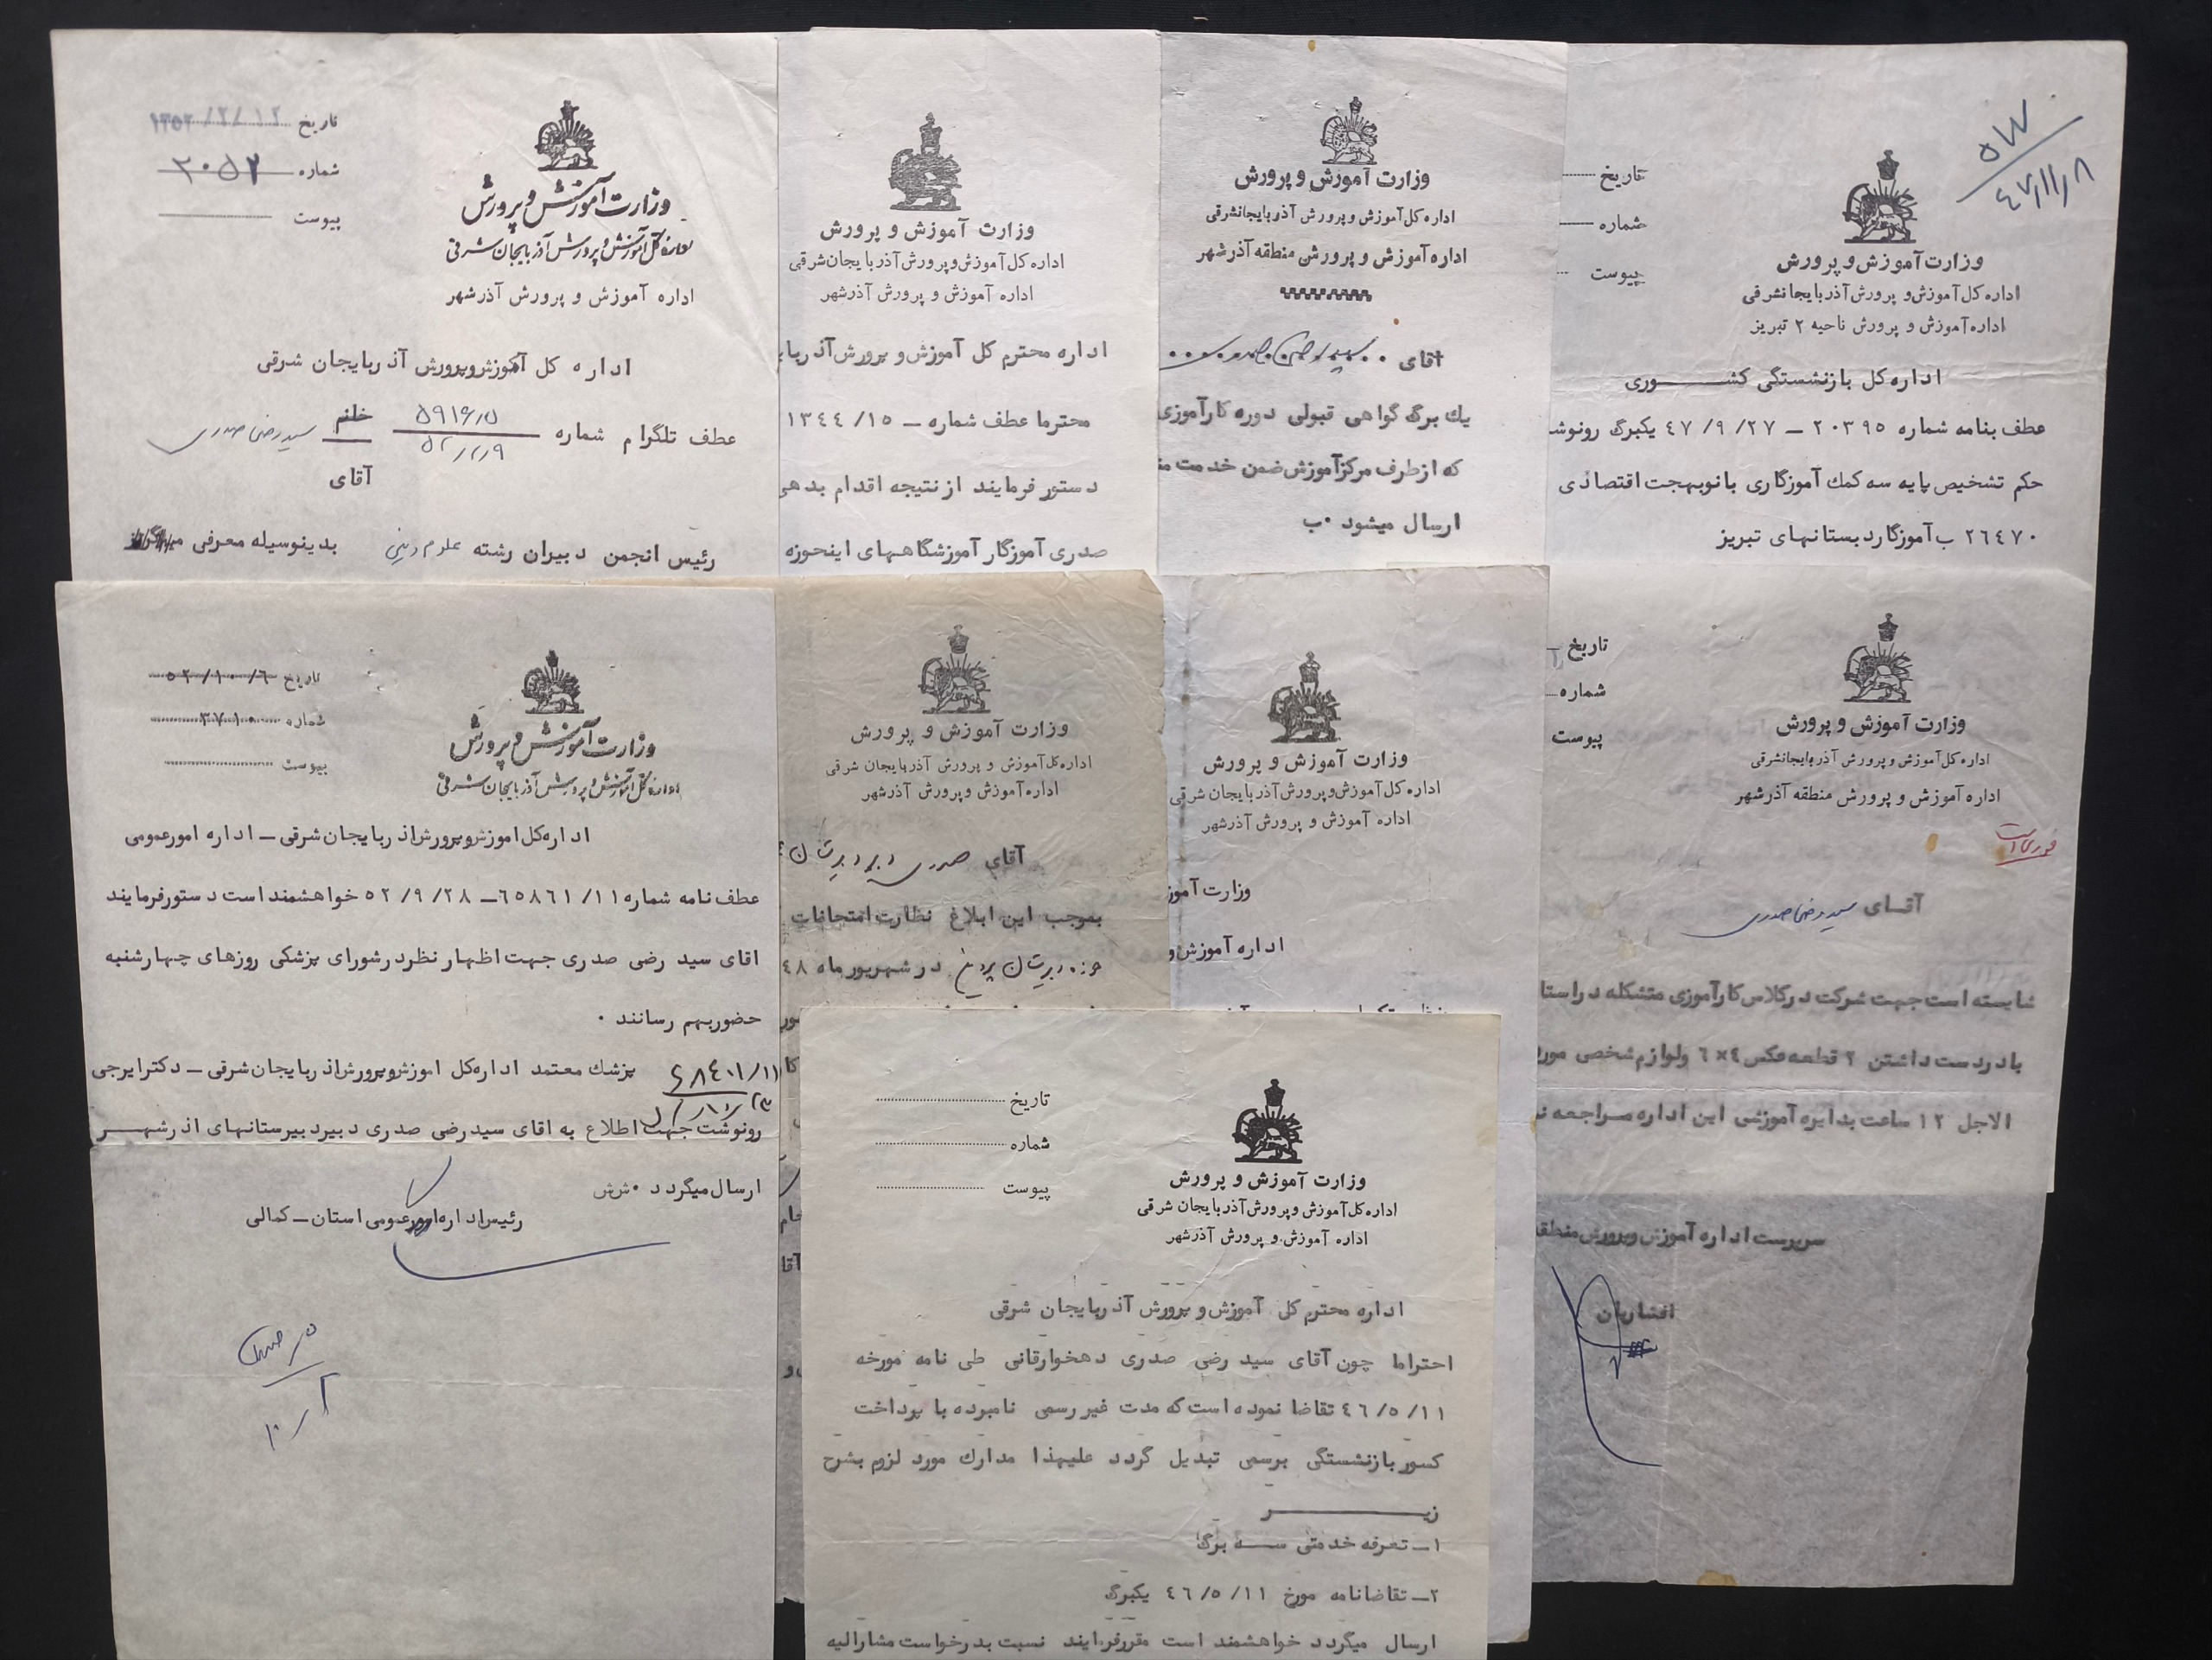 تاریخ ۱۳۵۲/۲/۱۲
شماره ۲۰۵۲
پیوست
وزارت آموزش و پرورش
اداره کل آموزش و پرورش آذربایجان شرقی
اداره آموزش و پرورش آذرشهر
اداره کل آموزش و پرورش آذربایجان شرقی
عطف تلگرام شماره ۵۹۱۶/۵
۵۲/۲/۹
خانم
آقای
سید رضی صدری
رئیس انجمن دبیران رشته علوم دینی بدینوسیله معرفی
وزارت آموزش و پرورش
اداره کل آموزش و پرورش آذربایجان شرقی
اداره آموزش و پرورش آذرشهر
اداره محترم کل آموزش و پرورش آذربا
محترما عطف شماره – ۱۵/ ۱۳۴۴
دستور فرمایند از نتیجه اقدام بدهی
صدری آموزگار آموزشگاههای اینحوزه
وزارت آموزش و پرورش
اداره کل آموزش و پرورش آذربایجانشرقی
اداره آموزش و پرورش منطقه آذرشهر
آقای سید رضی صدری
یك برگ گواهی قبولی دوره کارآموزی
که از طرف مرکز آموزش ضمن خدمت
ارسال میشود . ب
۵۷۷
۴۷/۱۱/۸
تاریخ
شماره
پیوست
وزارت آموزش و پرورش
اداره کل آموزش و پرورش آذربایجانشرقی
اداره آموزش و پرورش ناحیه ۲ تبریز
اداره کل بازنشستگی کشوری
عطف بنامه شماره ۲۰۳۹۵ – ۴۷/۹/۲۷ یکبرگ رونوشـ
حکم تشخیص پایه سه کمك آموزگاری بانو بهجت اقتصادی
۲۶۴۷۰ ب آموزگار دبستانهای تبریز
تاریخ ۵۲/۱۰/۶
شماره ۳۷۱۰
پیوست
وزارت آموزش و پرورش
اداره کل آموزش و پرورش آذربایجان شرقی
اداره کل اموزش و پرورش اذربایجان شرقی – اداره امور عمومی
عطف نامه شماره ۶۵۸۶۱/۱۱ – ۵۲/۹/۲۸ خواهشمند است دستور فرمایند
اقای سید رضی صدری جهت اظهار نظر در شورای پزشکی روزهای چهارشنبه
حضور بهم رسانند .
پزشك معتمد اداره کل اموزش و پرورش اذربایجان شرقی – دکتر ایرجی
۶۸۴۰۱/۱۱
رونوشت جهت اطلاع به اقای سید رضی صدری دبیر دبیرستانهای اذرشهر
ارسال میگردد . ش ش
رئیس اداره امور عمومی استان – کمالی
وزارت آموزش و پرورش
اداره کل آموزش و پرورش آذربایجان شرقی
اداره آموزش و پرورش آذرشهر
آقای صدری دبیر دبیرستان
بموجب این ابلاغ نظارت امتحانات
حوزه دبیرستان در شهریور ماه ۴۸
وزارت آموزش و پرورش
اداره کل آموزش و پرورش آذربایجان شرقی
اداره آموزش و پرورش آذرشهر
وزارت آموز
اداره آموزش و
تاریخ
شماره
پیوست
وزارت آموزش و پرورش
اداره کل آموزش و پرورش آذربایجانشرقی
اداره آموزش و پرورش منطقه آذرشهر
فوری است
آقای سید رضی صدری
شایسته است جهت شرکت در کلاس کارآموزی متشکله در استا
با در دست داشتن ۲ قطعه عکس ۴×۶ ولوازم شخصی مور
الاجل ۱۲ ساعت بدایره آموزشی این اداره مراجعه نـ
سرپرست اداره آموزش و پرورش منطقه
افشاریان
تاریخ
شماره
پیوست
وزارت آموزش و پرورش
اداره کل آموزش و پرورش آذربایجان شرقی
اداره آموزش و پرورش آذرشهر
اداره محترم کل آموزش و پرورش آذربایجان شرقی
احتراما چون آقای سید رضی صدری دهخوارقانی طی نامه مورخه
۴۶/۵/۱۱ تقاضا نموده است که مدت غیر رسمی نامبرده با پرداخت
کسور بازنشستگی برسمی تبدیل گردد علیهذا مدارك مورد لزوم بشرح
زیر
۱– تعرفه خدمتی سه برگ
۲– تقاضانامه مورخ ۴۶/۵/۱۱ یکبرگ
ارسال میگردد خواهشمند است مقرر فرمایند نسبت بدرخواست مشارالیه